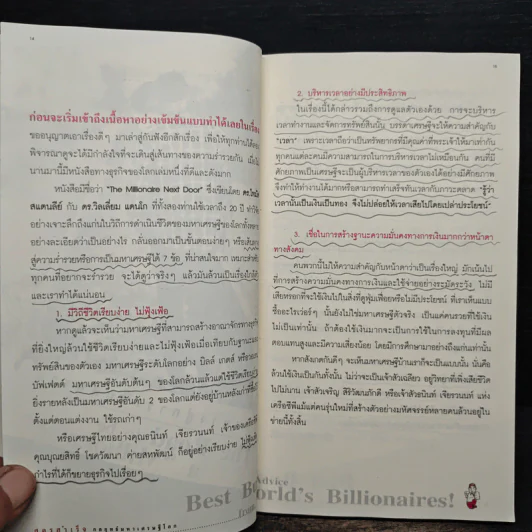 14
ก่อนจะเริ่มเข้าถึงเนื้อหาอย่างเข้มข้นแบบทำได้เลยในเรื่อง
ขออนุญาตเอาเรื่องดีๆ มาเล่าสู่กันฟังอีกสักเรื่อง เพื่อให้ทุกท่านได้
พิจารณาดูจะได้มีกำลังใจที่จะเดินสู่เส้นทางของความร่ำรวยกัน เมื่อไม่
นานมานี้มีหนังสือทางธุรกิจของโลกเล่มหนึ่งที่ดีและดังมาก
หนังสือมีชื่อว่า "The Millionaire Next Door" ซึ่งเขียนโดย ดร.โทมัส
สแตนลีย์ กับ ดร.วิลเลี่ยม แดนโก ที่ทั้งสองท่านใช้เวลาถึง 20 ปี
อย่างเจาะลึกถึงแก่นในวิถีการดำเนินชีวิตของมหาเศรษฐีของโลกทั้ง
อย่างละเอียดว่าเป็นอย่างไร กลั่นออกมาเป็นขั้นตอนง่ายๆ หรือเส้นทาง
สู่ความร่ำรวยหรือการเป็นมหาเศรษฐีได้ 7 ข้อ ที่น่าสนใจมาก เหมาะสำหรับ
ทุกคนที่อยากจะร่ำรวย จะได้ดูว่าจริงๆ แล้วมันล้วนเป็นเรื่องใกล้ตัว
และเราทำได้แน่นอน
1. มีวิถีชีวิตเรียบง่าย ไม่ฟุ้งเฟ้อ
หากดูแล้วจะเห็นว่ามหาเศรษฐีที่สามารถสร้างอาณาจักรทางธุรกิจ
ที่ยิ่งใหญ่ล้วนใช้ชีวิตเรียบง่ายและไม่ฟุ้งเฟ้อเมื่อเทียบกับฐานะและ
ทรัพย์สินของตัวเอง มหาเศรษฐีระดับโลกอย่าง บิลล์ เกตส์ หรือวอร์เรน
บัฟเฟตต์ มหาเศรษฐีอันดับต้นๆ ของโลกล้วนแล้วแต่ใช้ชีวิตเรียบง่าย
ยิ่งรายหลังเป็นมหาเศรษฐีอันดับ 2 ของโลกแต่ยังอยู่บ้านหลังเก่าที่
ตั้งแต่ตอนแต่งงาน ใช้รถเก่าๆ
หรือเศรษฐีไทยอย่างคุณธนินท์ เจียรวนนท์ เจ้าของเครือซีพี
คุณบุณยสิทธิ์ โชควัฒนา ค่ายสหพัฒน์ ก็อยู่อย่างเรียบง่าย ไม่ฟุ้งเฟ้อ
กำไรที่ได้ก็ขยายธุรกิจไปเรื่อยๆ
2. บริหารเวลาอย่างมีประสิทธิภาพ
ในเรื่องนี้ได้กล่าวรวมถึงการดูแลตัวเองด้วย การจะบริหาร
เวลาทำงานและจัดการทรัพย์สินนั้น บรรดาเศรษฐีจะให้ความสำคัญกับ
"เวลา" เพราะเวลาถือว่าเป็นทรัพยากรที่มีคุณค่าที่พระเจ้าให้มาเท่ากัน
ทุกคนแต่ละคนมีความสามารถในการบริหารเวลาไม่เหมือนกัน คนที่มี
ศักยภาพเป็นเศรษฐีจะเป็นผู้บริหารเวลาของตัวเองได้อย่างมีศักยภาพ
จึงทำให้ทำงานได้มากหรือสามารถทำเสร็จทันเวลากับภาวะตลาด "รู้ว่า
เวลานั้นเป็นเงินเป็นทอง จึงไม่ปล่อยให้เวลาเสียไปโดยเปล่าประโยชน์"
3. เชื่อในการสร้างฐานะความมั่นคงทางการเงินมากกว่าหน้าตา
ทางสังคม
คนพวกนี้ไม่ให้ความสำคัญกับหน้าตาว่าเป็นเรื่องใหญ่ มักเน้นไป
ที่การสร้างความมั่นคงทางการเงินและใช้จ่ายอย่างระมัดระวัง ไม่มี
เสียหรอกที่จะใช้เงินไปในสิ่งที่ฟุ่มเฟือยหรือไม่มีประโยชน์ ที่เราเห็นแบบ
ซื้ออะไรเว่อร์ๆ นั้นยังไม่ใช่มหาเศรษฐีตัวจริง เป็นแค่คนรวยที่ใช้เงิน
ไม่เป็นเท่านั้น ถ้าต้องใช้เงินมากจะเป็นการใช้ในการลงทุนที่มีผล
ตอบแทนสูงและมีความเสี่ยงน้อย โดยมีการศึกษามาอย่างดีถึงแก่นเท่านั้น
หากสังเกตกันดีๆ จะเห็นมหาเศรษฐีบ้านเราก็จะเป็นแบบนั้น นั่นคือ
ล้วนใช้เงินเป็นกันทั้งนั้น ไม่ว่าจะเป็นเจ้าสัวเฉลียว อยู่วิทยาที่เพิ่งเสียชีวิต
ไปไม่นาน เจ้าสัวเจริญ สิริวัฒนภักดี หรือเจ้าสัวธนินท์ เจียรวนนท์ แห่ง
เครือซีพีแม้แต่คนรุ่นใหม่ที่สร้างตัวอย่างมหัศจรรย์หลายคนล้วนอยู่ใน
ข่ายนี้ทั้งสิ้น
Advice
World's Billionaires!